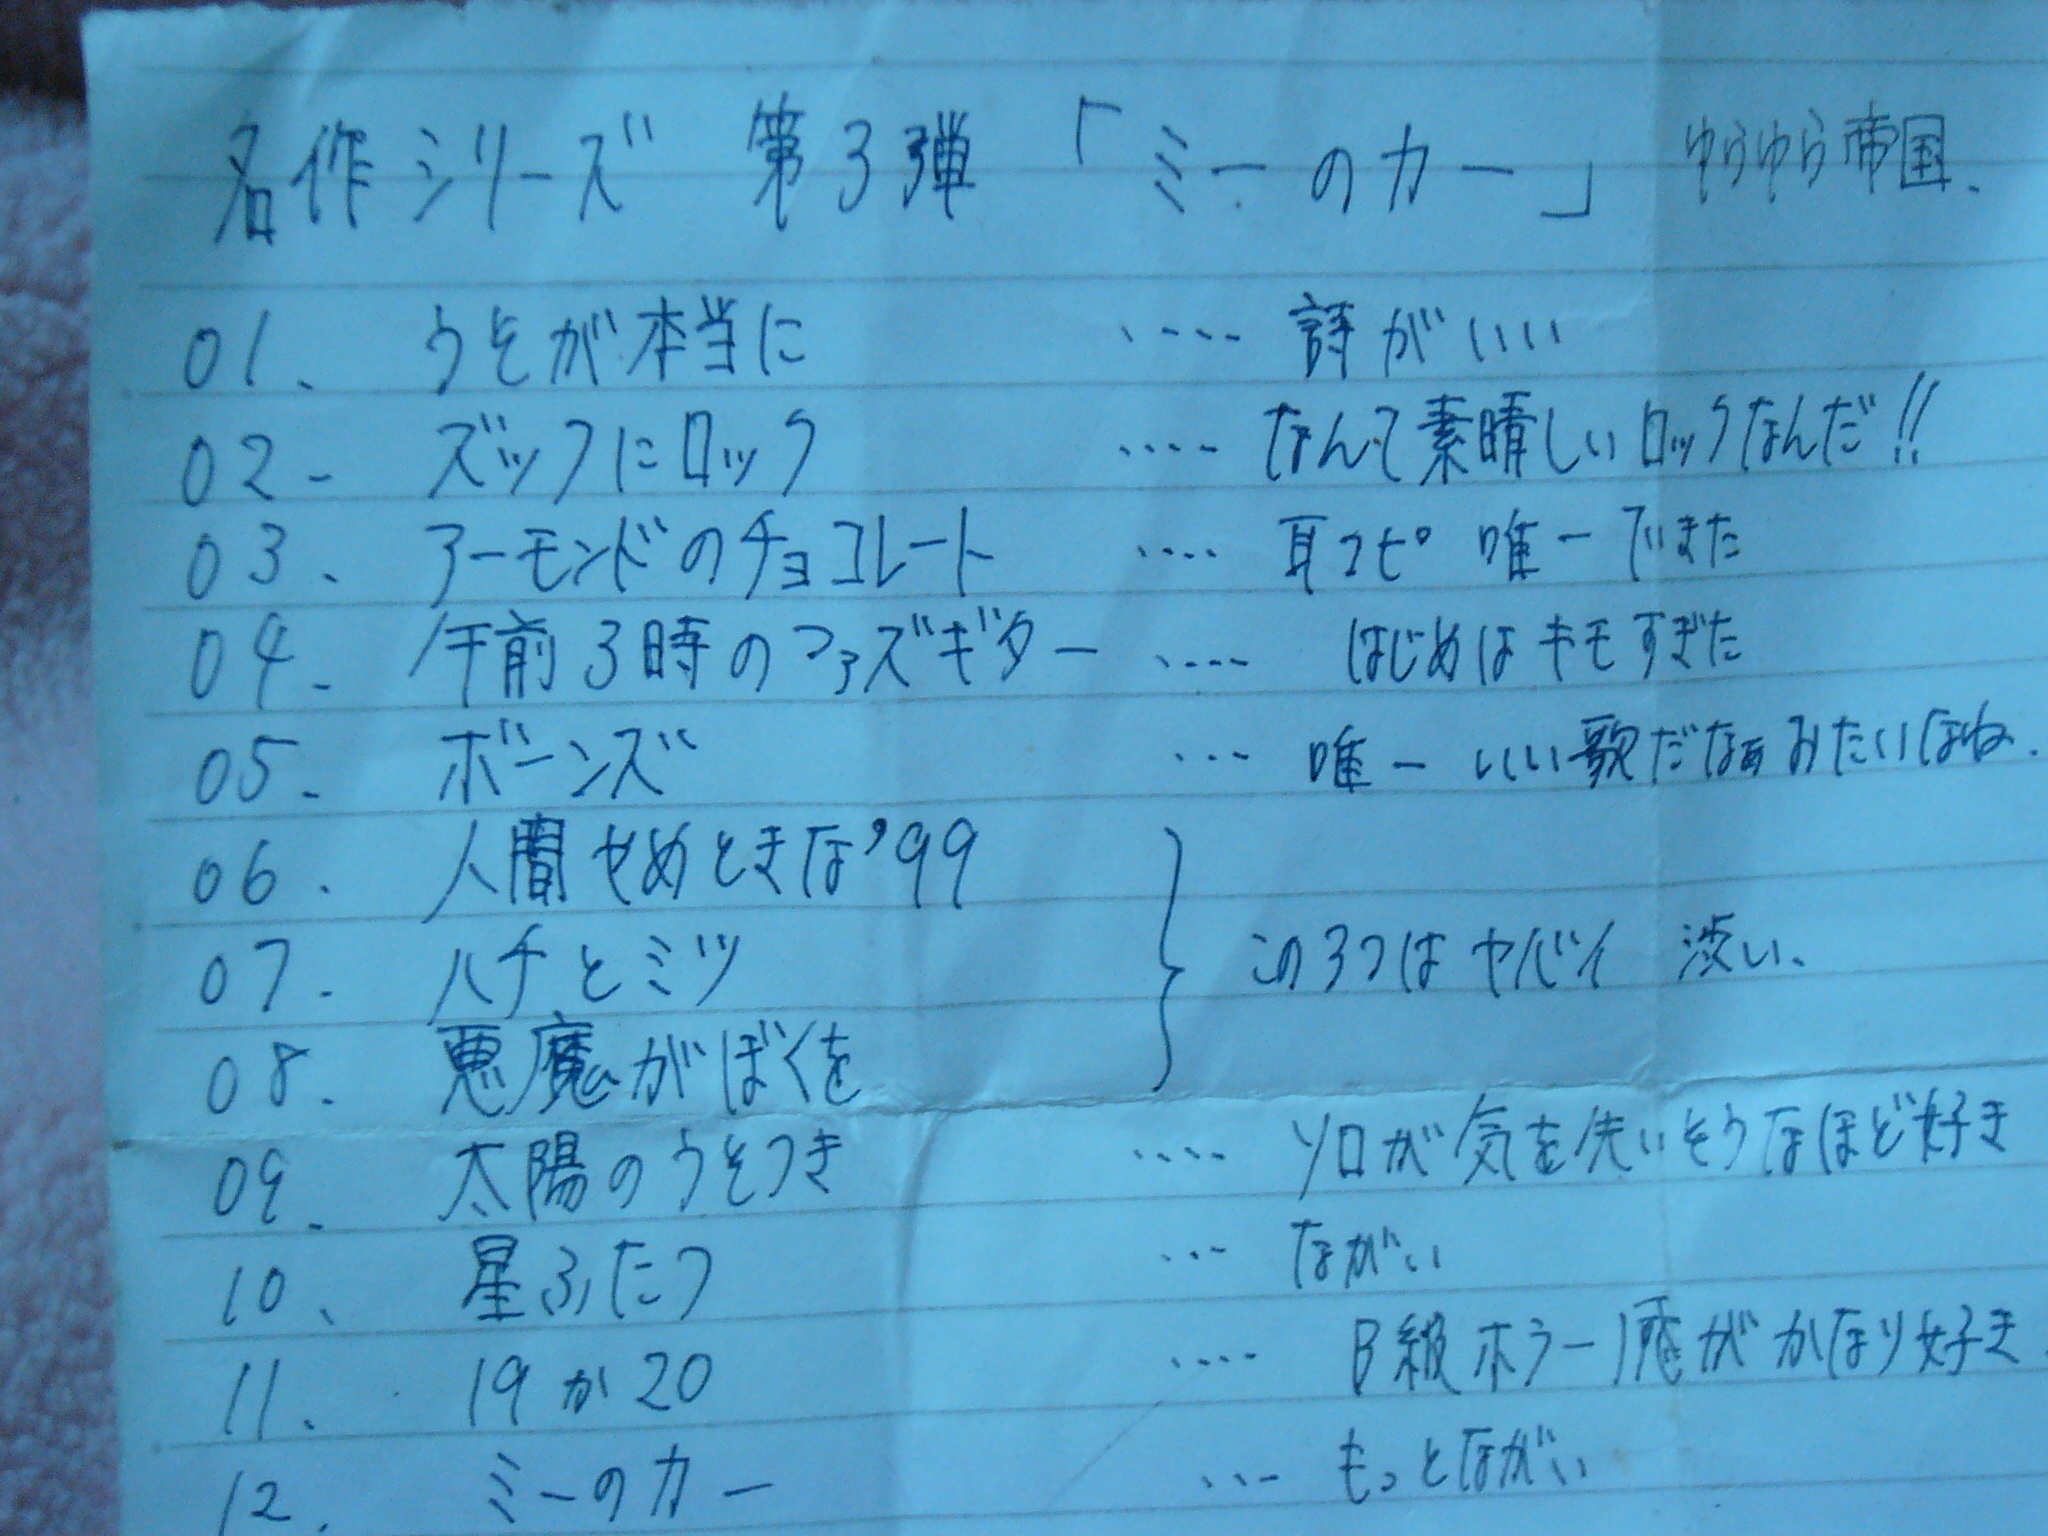 名作シリーズ 第3弾 「ミーのカー」 ゆらゆら帝国.
01. うそが本当に ‥‥ 詩がいい
02. ズックにロック ‥‥ なんて素晴しいロックなんだ!!
03. アーモンドのチョコレート ‥‥ 耳コピ 唯一できた
04. 午前3時のファズギター ‥‥ はじめはキモすぎた
05. ボーンズ … 唯一 いい歌だなぁみたいなね.
06. 人間やめときな'99
07. ハチとミツ } この3つはヤバイ 渋い、
08. 悪魔がぼくを
09. 太陽のうそつき ‥‥ ソロが気を失いそうなほど好き
10. 星ふたつ … ながい
11. 19か20 ‥‥ B級ホラー感がかなり好き.
12. ミーのカー … もっとながい